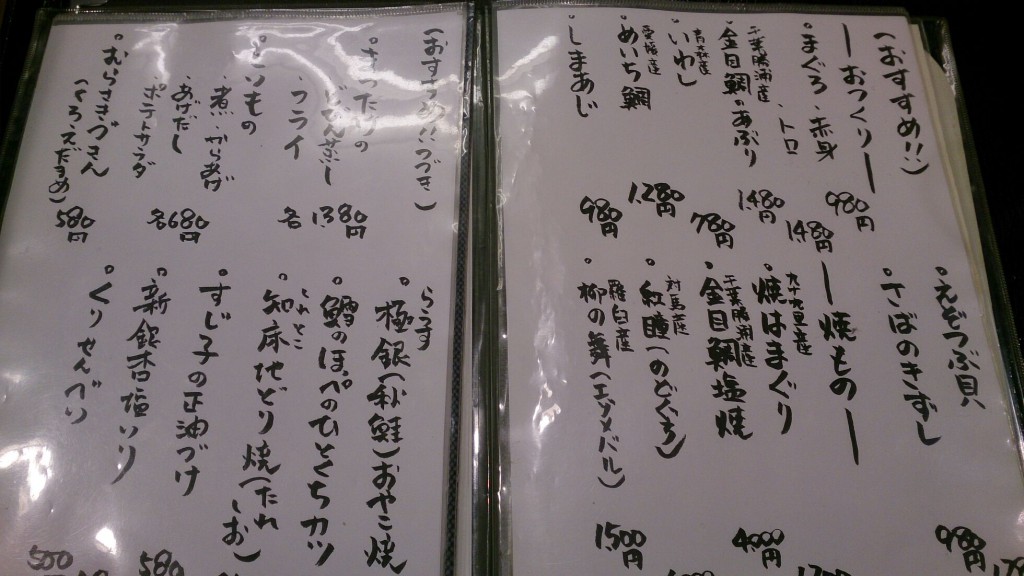 (おすすめ!!)
ーおつくりー
・まぐろ、赤身 980円
、トロ 1480円
千葉勝浦産
・金目鯛のあぶり 1480円
・いわし 780円
愛媛産
・めいち鯛 1,280円
・しまあじ 980円
・えぞつぶ貝 980円
・さばのきずし
ー焼ものー
九十九里産
焼はまぐり
千葉勝浦産
・金目鯛塩焼 4000円
対馬産
・紅瞳(のどぐろ)
羅臼産
・柳の舞(エゾメバル) 1,500円
(おすすめ!!つづき)
フライ 各1380円
煮・からあげ
あげだし
ポテトサラダ 各680円
・むらさきずきん
(くろ・えだまめ) 580円
らうす
・極銀(秋鮭)おやこ焼
・鱈のほぺのひとくちカツ
しれとこ
・知床地どり焼(たれ
しお)
・すじ子の正油づけ
・新銀杏塩いり 580
・くりせんべい 500円